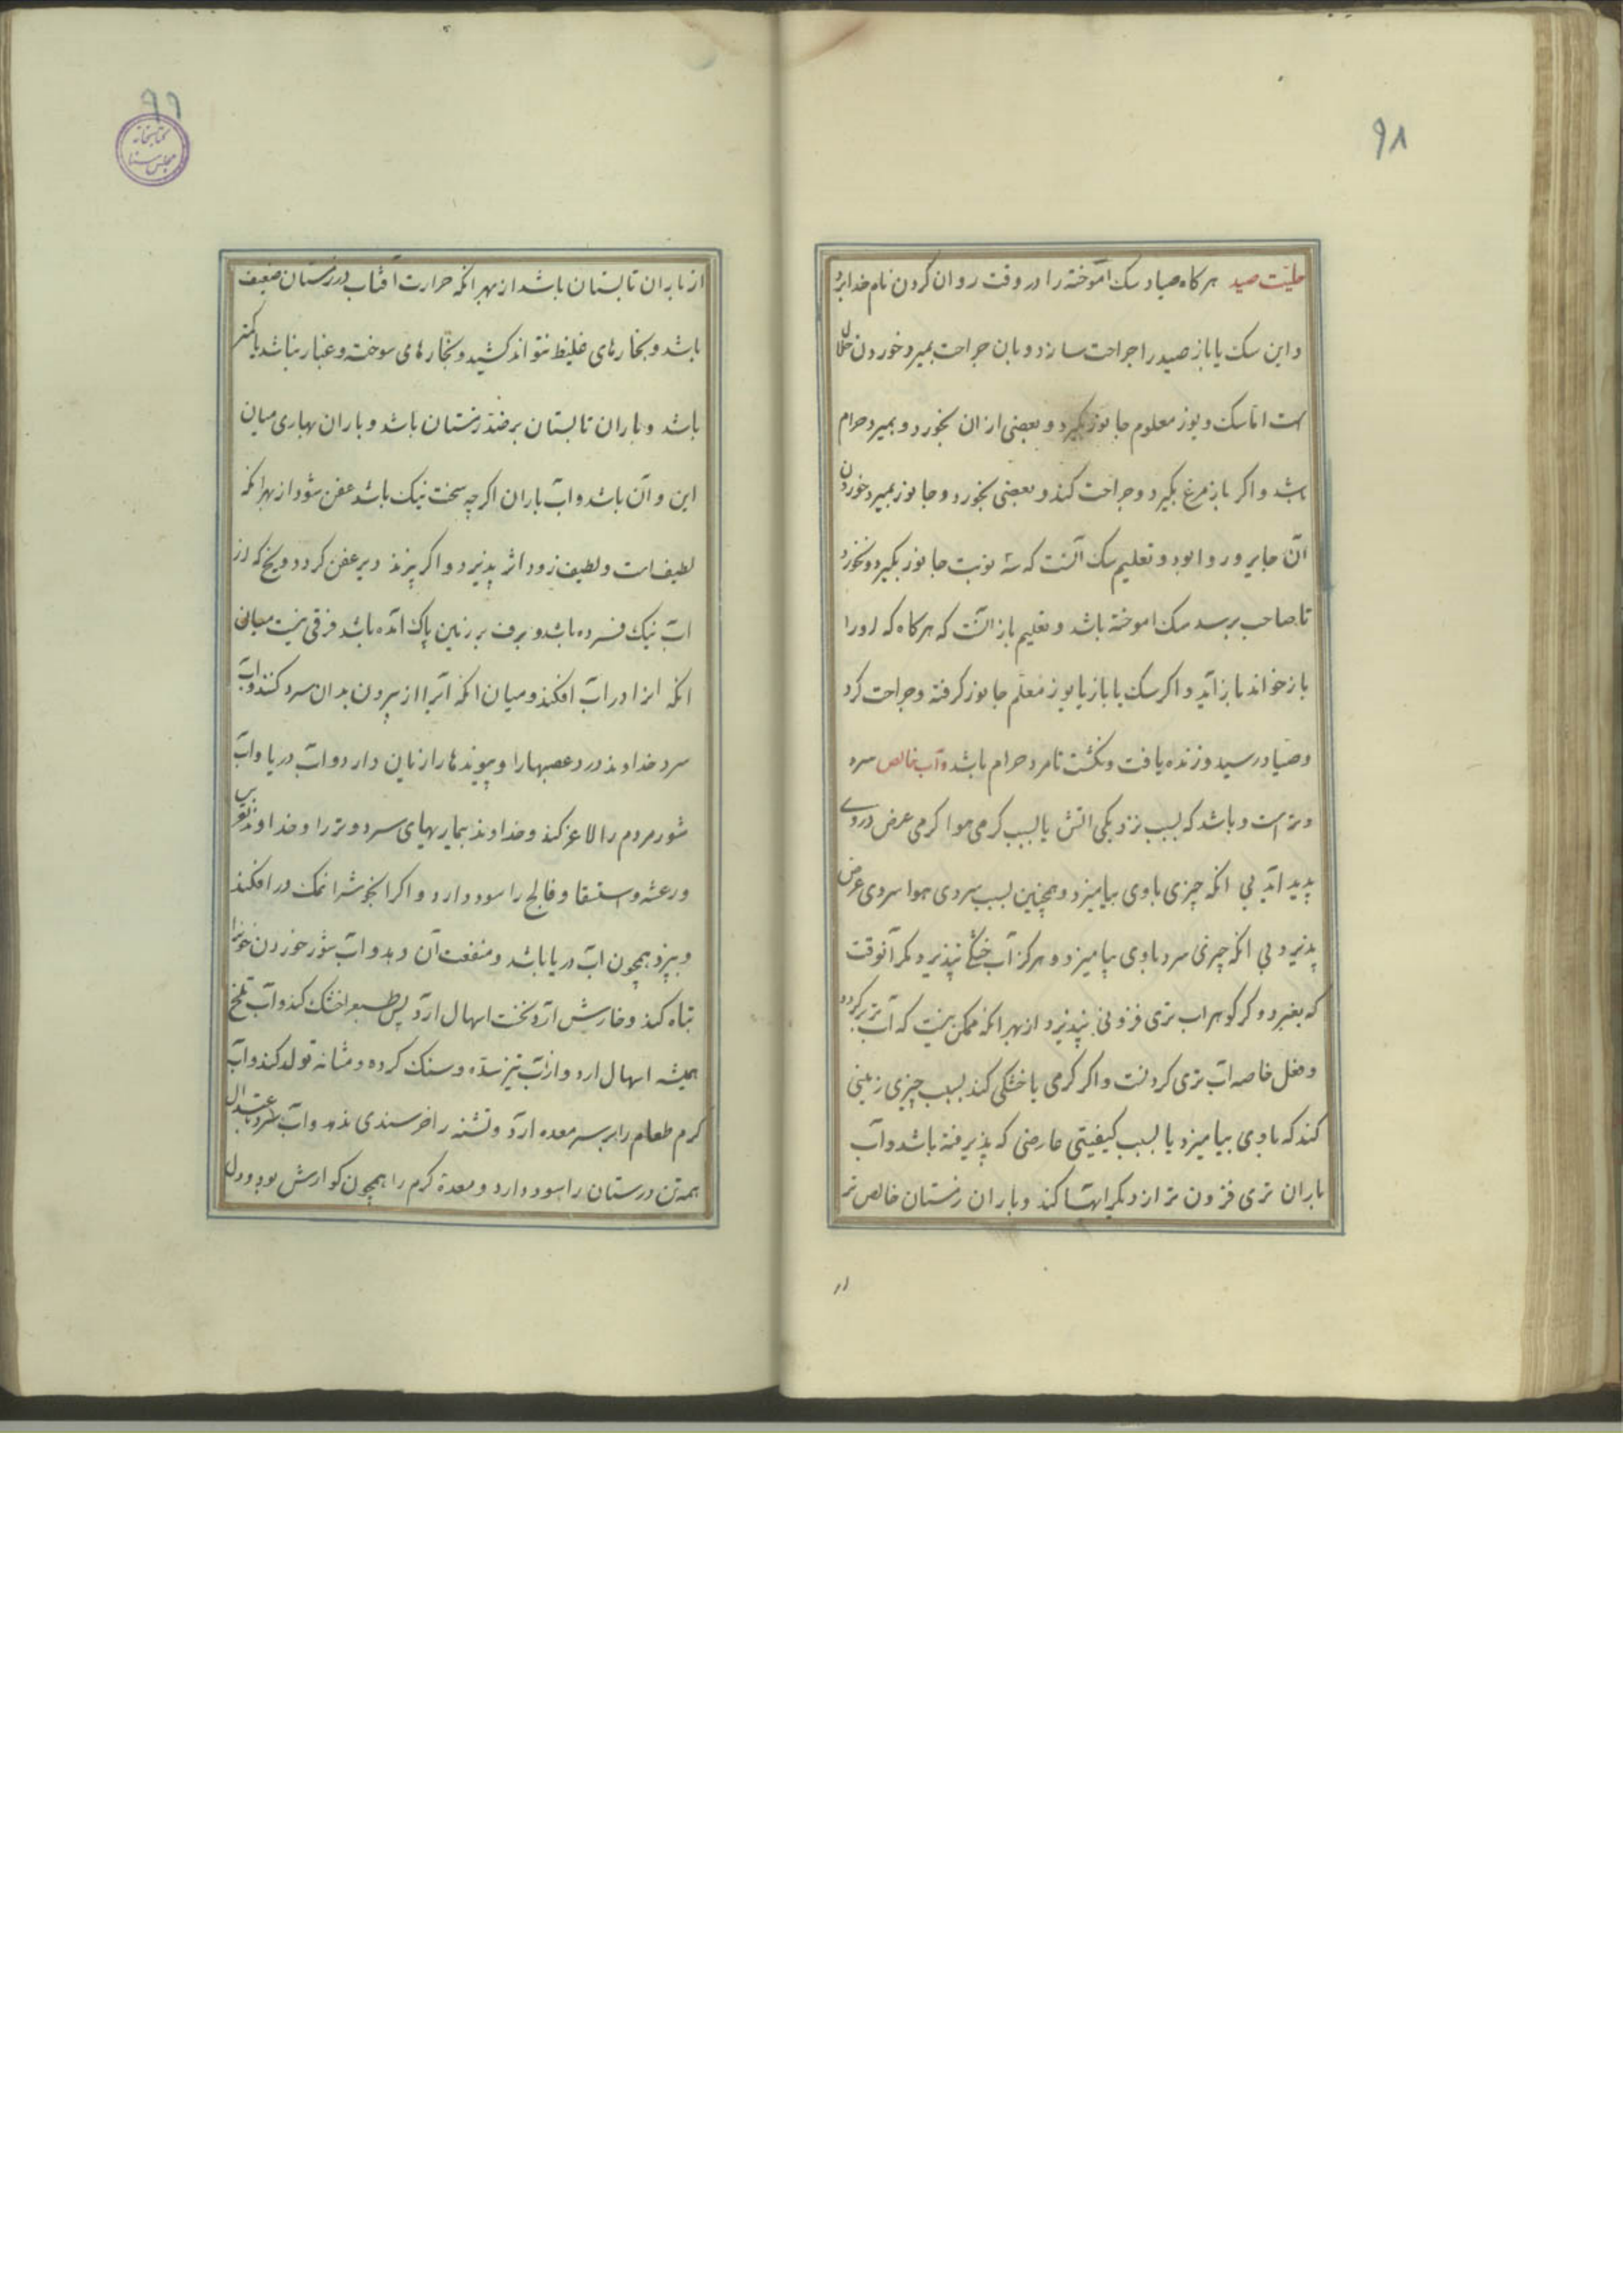 ۹۸
حلیّت صید هر کاه صیاد سک آموخته را در وقت روان کردن نام خدا برد
و این سک یا باز صید را جراحت سازد و بان جراحت بمیرد خوردن حلال
است اما سک و یوز معلوم جانور بگیرد و بعضی از ان بخورد و بمیرد حرام
باشد و اکر باز مرغ بگیرد و جراحت کند و بعضی بخورد و جانور بمیرد خوردن
آن جایر و روا بود و تعلیم سک آنست که سه نوبت جانور بگیرد و نخورد
تا صاحب برسد سک اموخته باشد و تعلیم باز آنست که هر کاه که او را
باز خواند باز آید و اکر سک یا باز یا یوز معلّم جانور کرفته و جراحت کرد
و صیّاد رسید و زنده یافت و نکشت تا مرد حرام باشد و آب خالص سرد
و تر است و باشد که بسبب نزدیکی اتش یا بسبب کرمی هوا کرمی عرض در وے
پدید اید بی انکه چیزی باوی بیامیزد و همچنین بسبب سردی هوا سردی عرض
پذیرد بی انکه چیزی سرد باوی بیامیزد و هرکز آب خشکے نپذیرد مکر آنوقت
که بغیرد و کر کوهر اب تری فزونی نپذیرد از بهر انکه ممکن نیست که آب تر تر کردد
و فعل خاصه آب تری کردنست و اکر کرمی یا خشکی کند بسبب چیزی زمینی
کند که باوی بیامیزد یا بسبب کیفیتی عارضی که پذیرفته باشد و آب
باران تری فزون تر از دیکر ابها کند و باران زمستان خالص تر
از
۹۹
کتابخانه
مجلس سنا
از باران تابستان باشد از بهر انکه حرارت آفتاب در زمستان ضعیف
باشد و بخارهای غلیظ نتواند کشید و بخارهای سوخته و غبار نباشد یا کمتر
باشد و باران تابستان بر ضد زمستان باشد و باران بهاری میان
این و آن باشد و آب باران اکرچه سخت نیک باشد عفن شود از بهر انکه
لطیف است و لطیف زود اثر پذیرد و اکر بپزند دیر عفن کردد و یخ که از
اب نیک فسرده باشد و برف بر زمین پاک آمده باشد فرقی نیست میان
انکه انرا در اب افکنند و میان انکه آنرا از بیرون بدان سرد کنند و آب
سرد خداوند درد عصبها را و پیوندها را زیان دارد و اب دریا و اب
شور مردم را لاغر کند و خداوند بیماریهای سرد و تر را و خداوند
و رعشه و استسقا و فالج را سود دارد و اکر ابخوش را نمک در افکنند
و بپزند همچون اب دریا باشد و منفعت آن دهد و اب شور خوردن خونرا
تباه کند و خارش آرد نخست اسهال ارد پس طبع را خشک کند و آب تلخ
همیشه اسهال ارد و از آب تیز سدّه و سنک کرده و مثانه تولد کند و آب
کرم طعام را بر سر معده ارد و تشنه را خرسندی ندهد و اب سرد باعتدال
همه تن درستان را سود دارد و معدهٔ کرم را همچون کوارش بود و دل